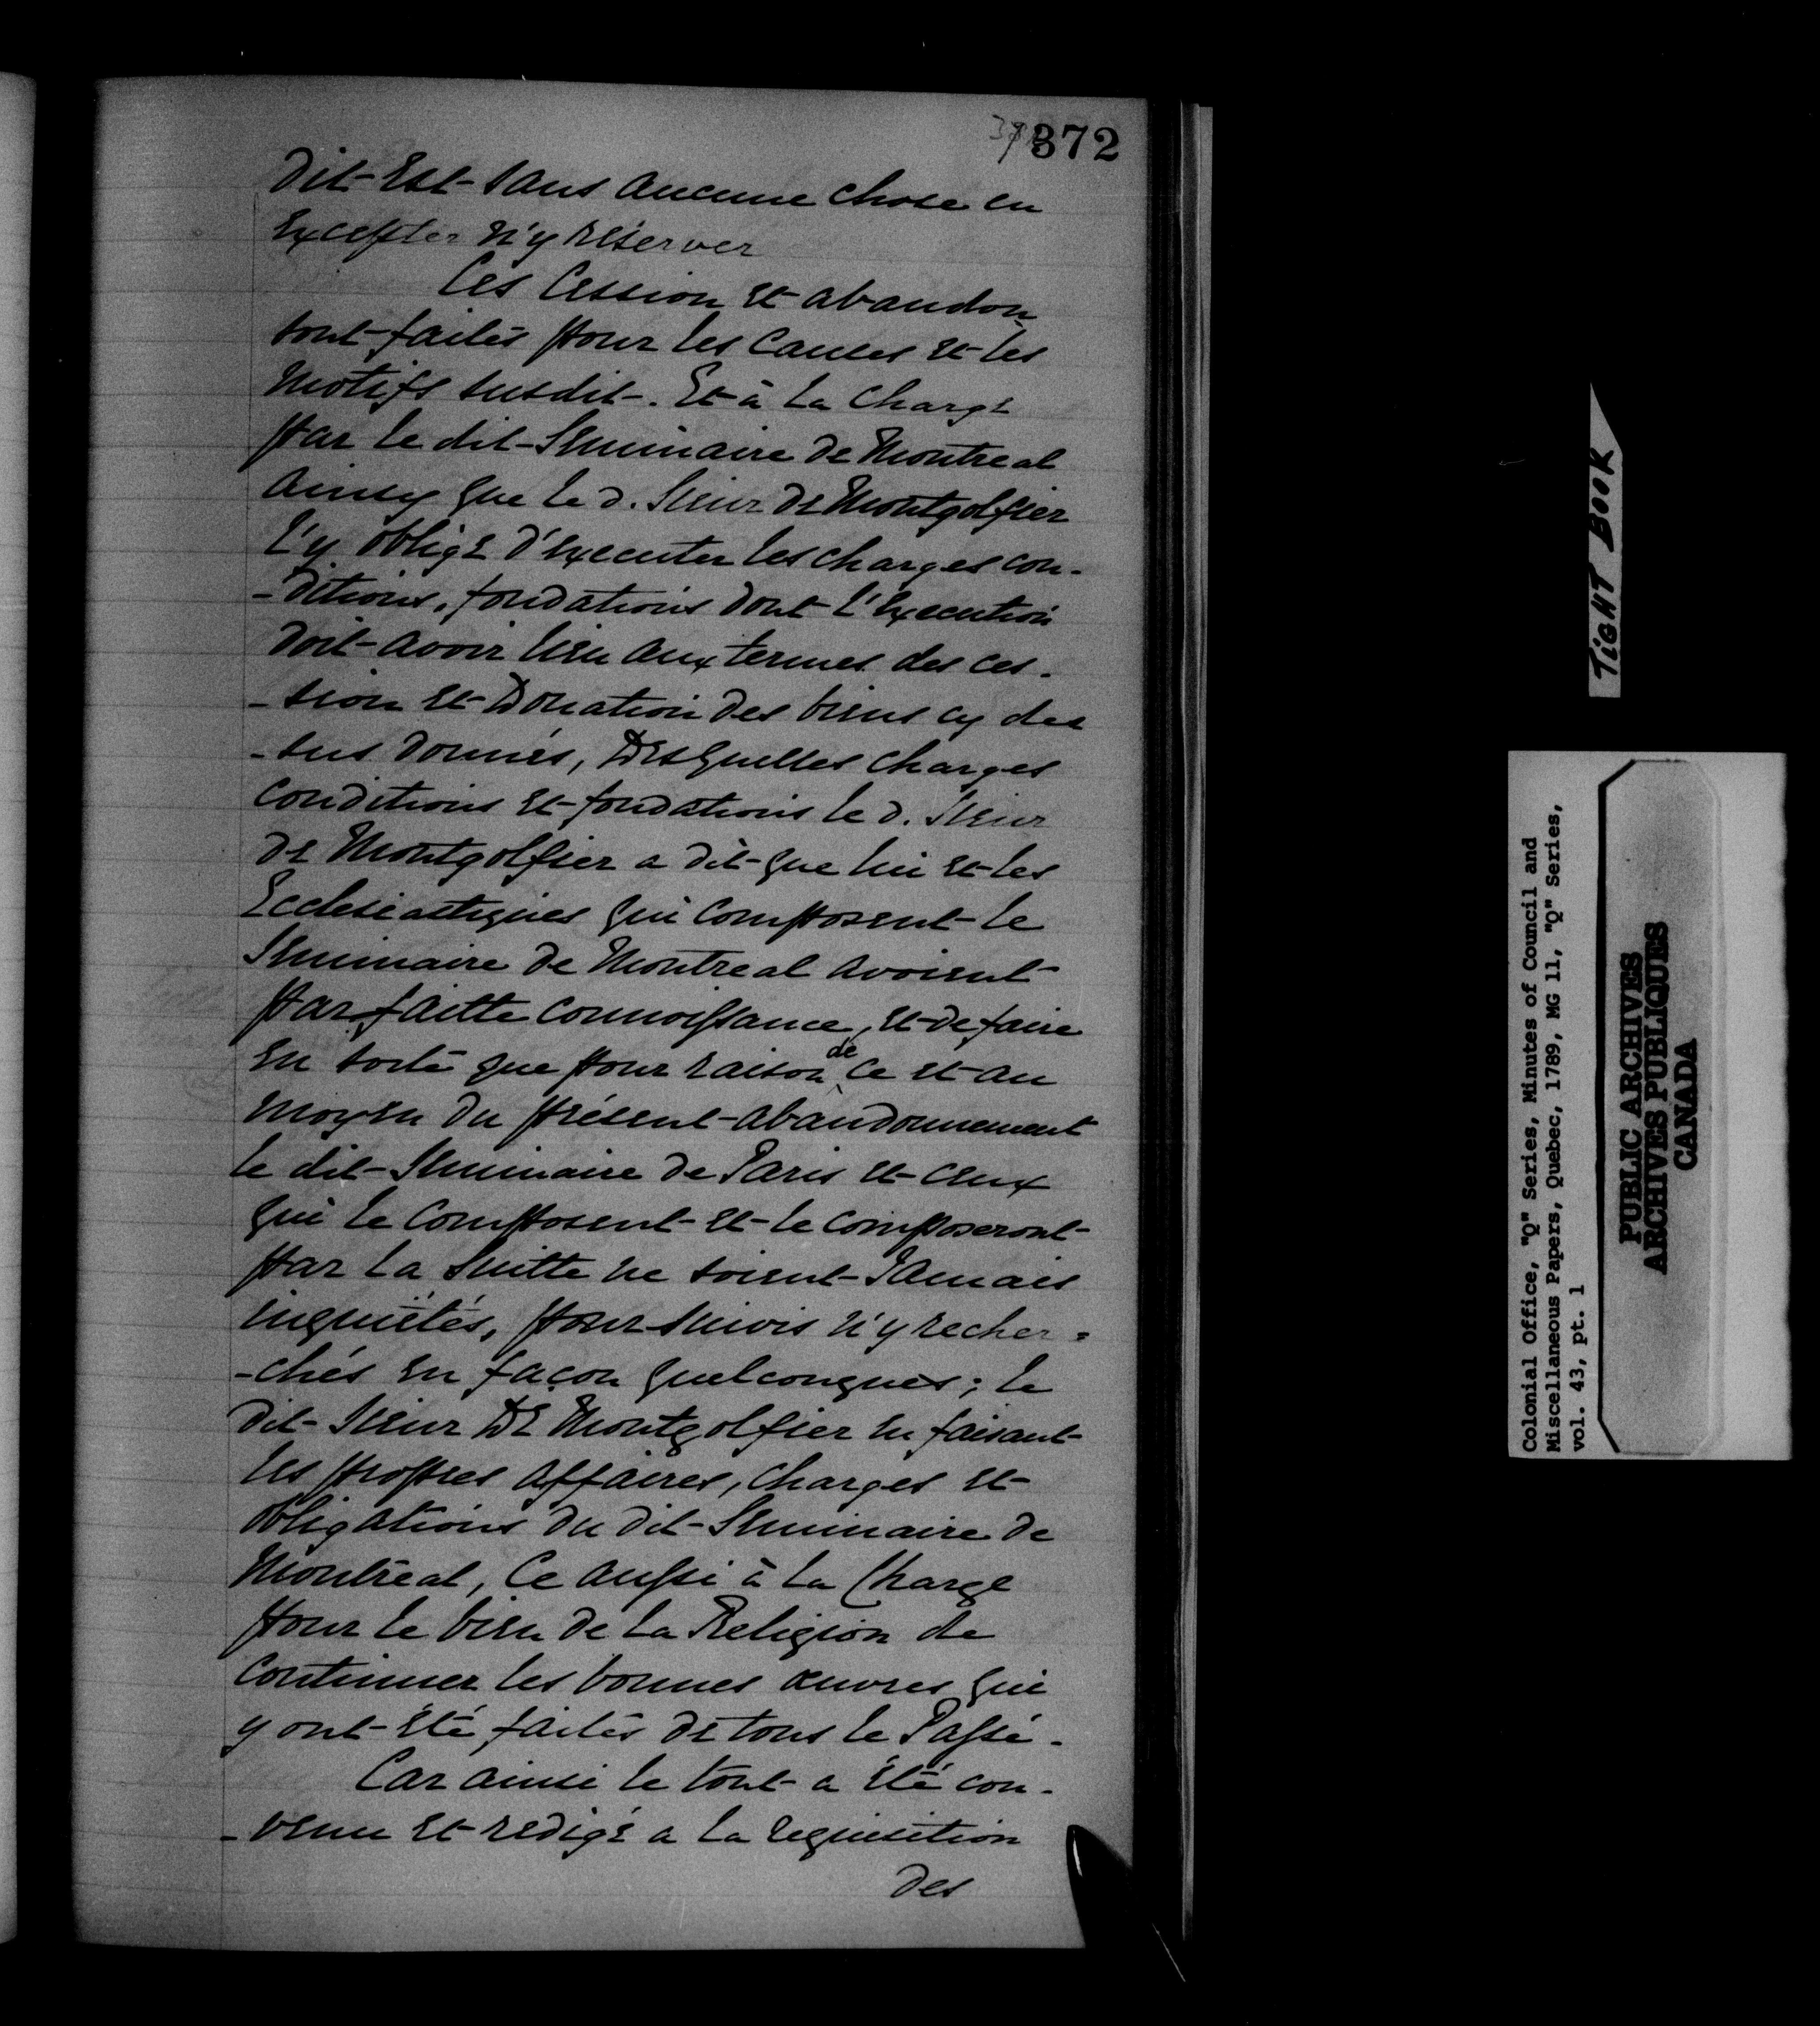 372
Dit Est sans aucune chose en
Excepter n'y réserver
Ces Cession et abandon
sont faites pour les Causes et les
Motifs susdit. Et à la Charge
par le dit Seminaire de Montreal
ainsy que le d. Sieur de Montgolfier
l'y oblige d'Executer les charges con-
-ditions, fondations dont l'Execution
doit avoir lieu aux termes des ces-
-sion et Donation des biens cy des
-sus donnés, Desquelles charges
conditions et fondations le d. Sieur
de Montgolfier a dit que lui et les
Ecclesiastiques qui composent le
Seminaire de Montreal avoient
parfaitte connoissance, et de faire
en sorte que pour raison de ce et au
moyen du présent abandonnement
le dit Seminaire de Paris et ceux
qui le composent et le composeront
par la Suitte ne soient Jamais
inquiétés, poursuivis n'y recher-
-chés en façon quelconques; le
dit Sieur De Montgolfier en faisant
les propres affaires, charges et
obligations du dit Seminaire de
Montréal, Ce aussi à la Charge
pour le bien de la Religion de
Continuer les bonnes œuvres qui
y ont Été faites de tous le Passé.
Car ainsi le tout a Été con-
-venu et redigé a la requisition
des
TIGHT BOOK
Colonial Office, "Q" Series, Minutes of Council and
Miscellaneous Papers, Quebec, 1789, MG 11, "Q" Series,
vol. 43, pt. 1
PUBLIC ARCHIVES
ARCHIVES PUBLIQUES
CANADA